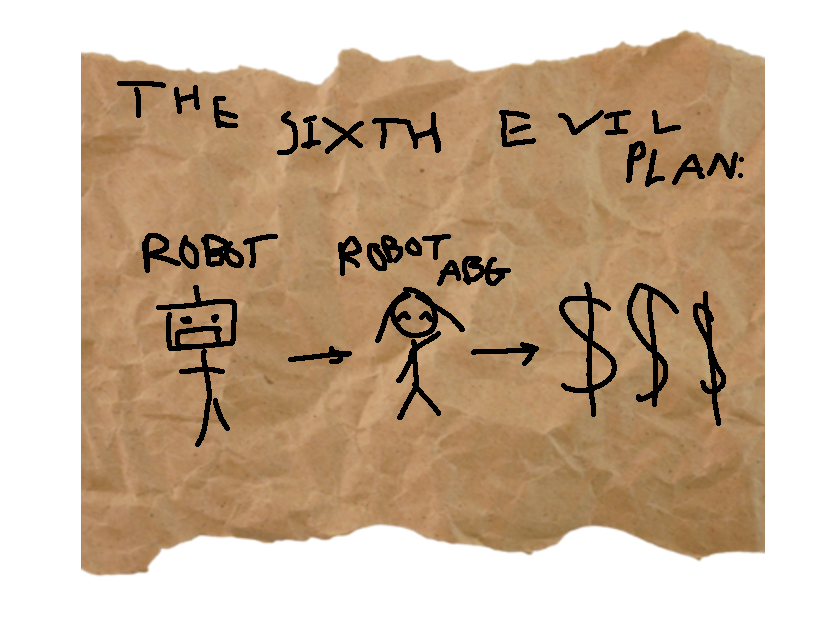 THE SIXTH EVIL
PLAN:
ROBOT ROBOT
ABG
$ $ $